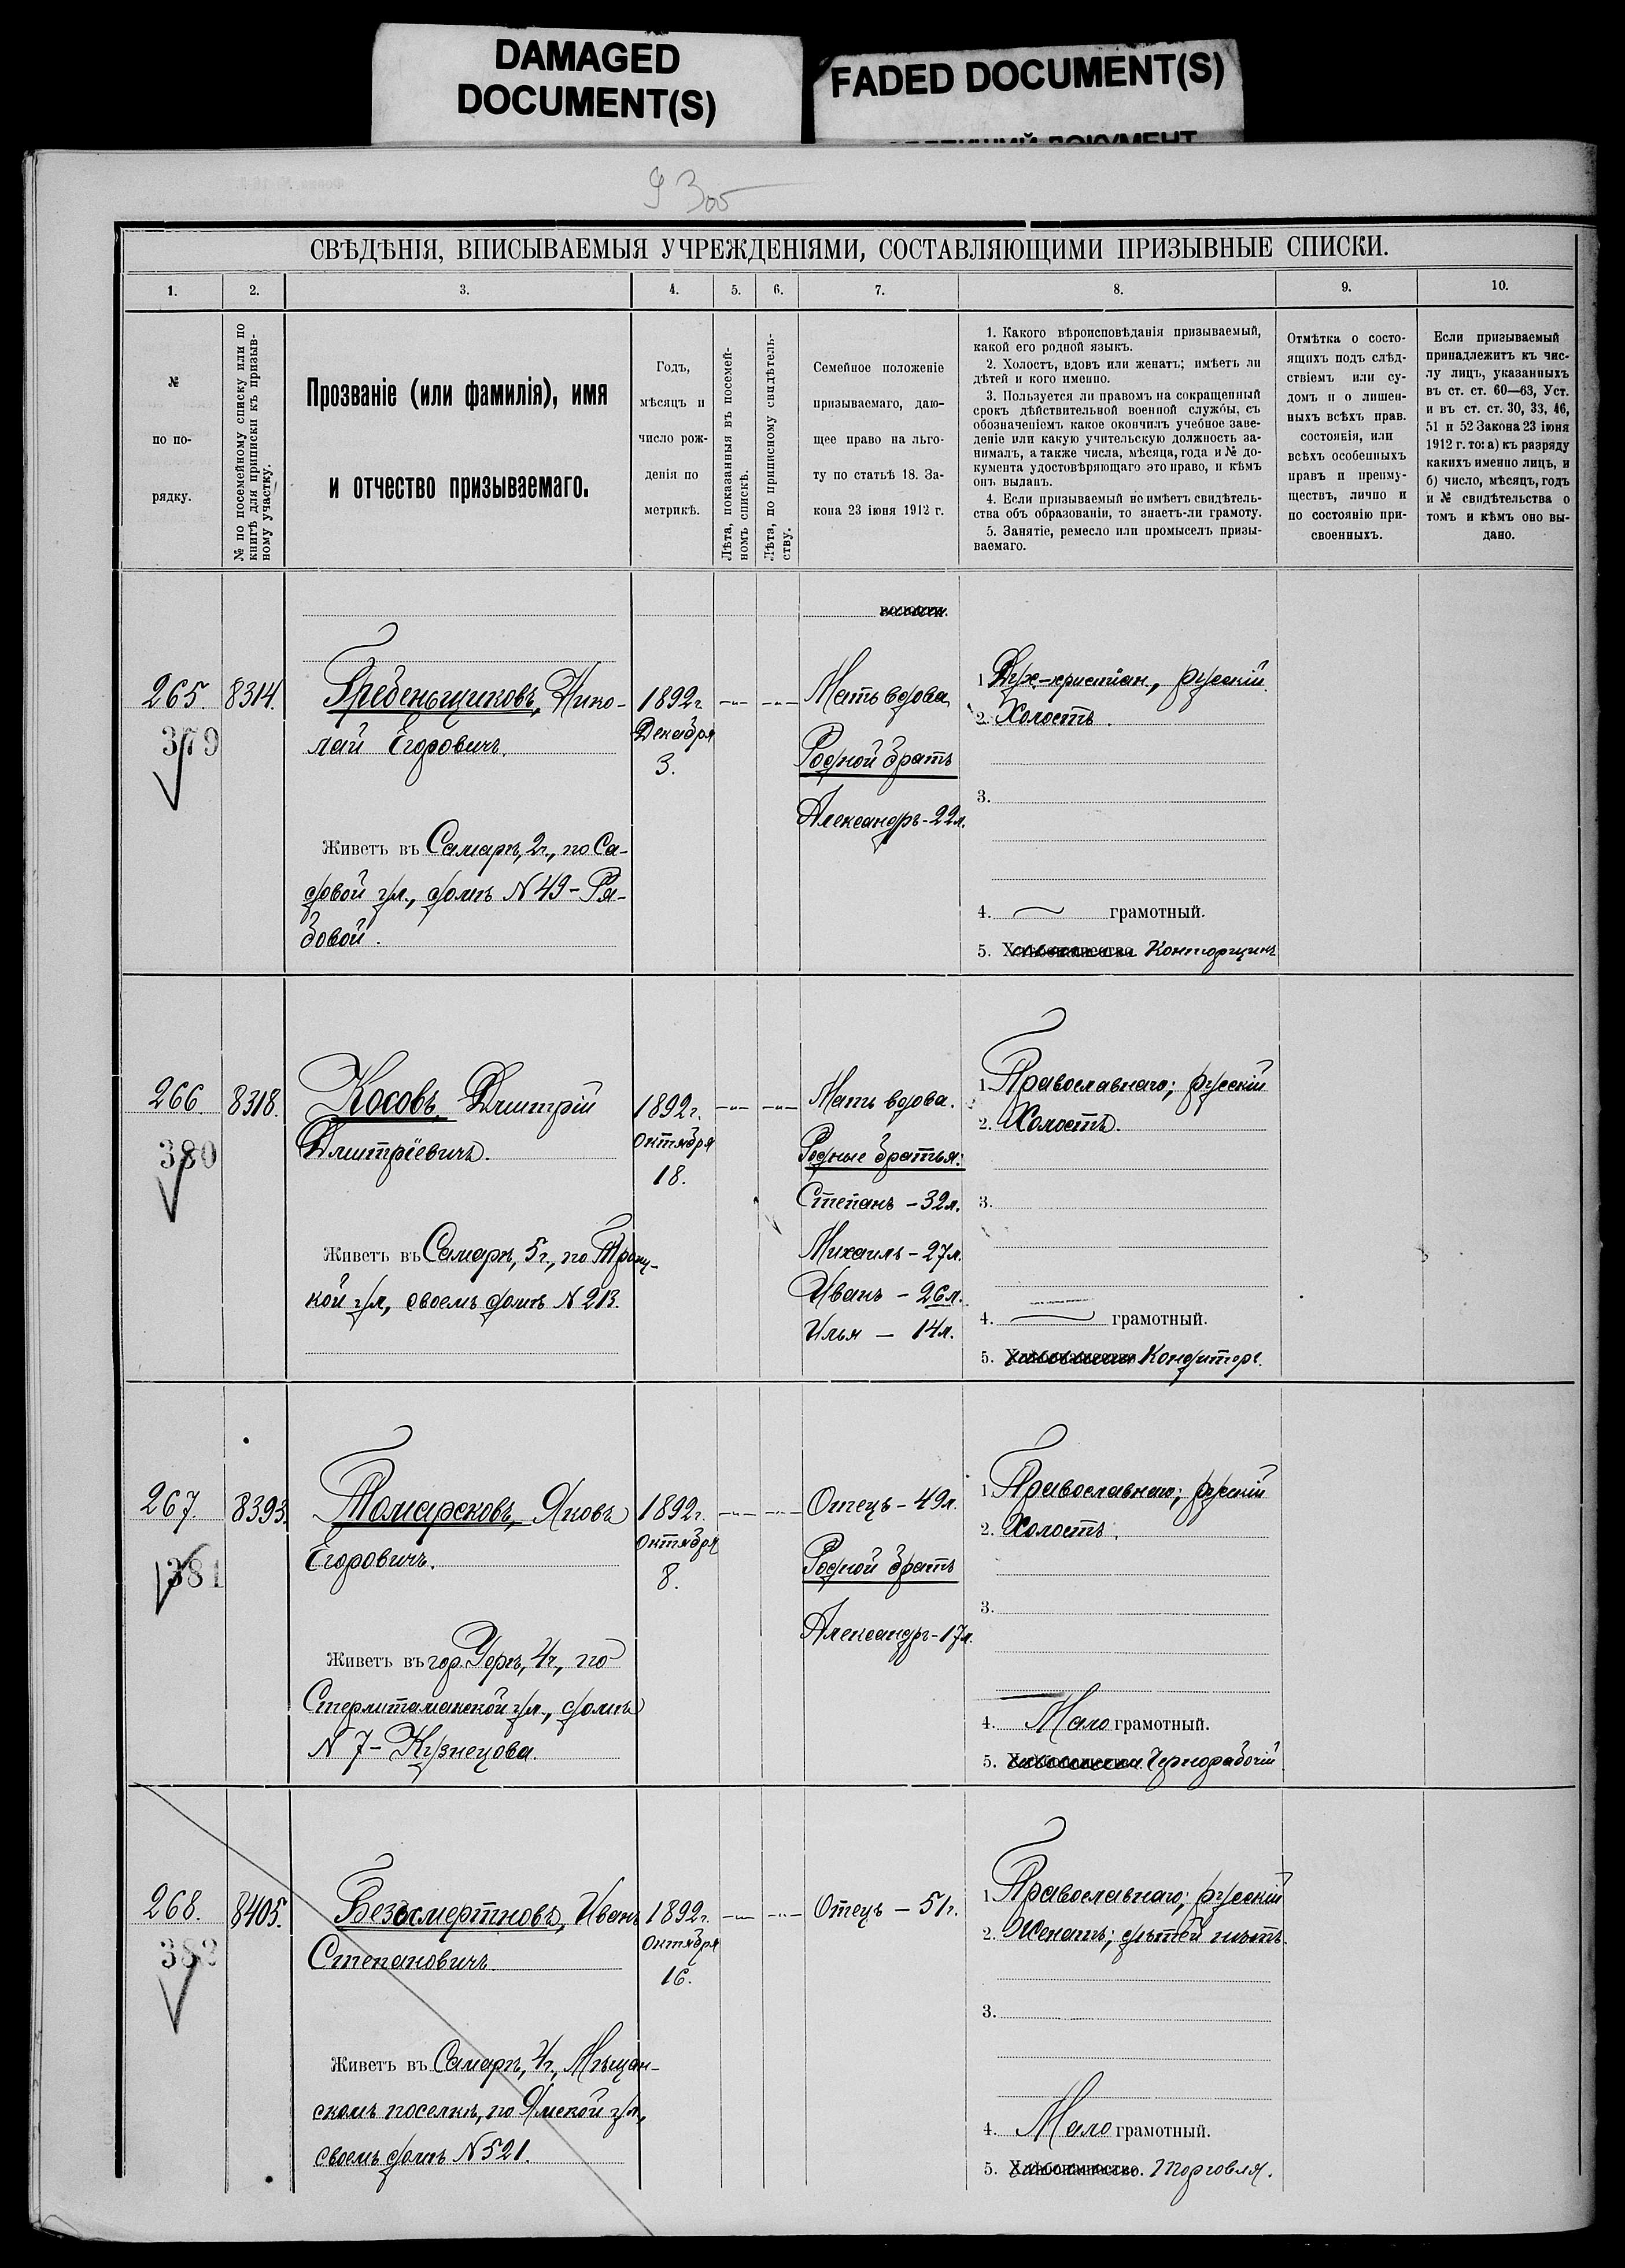 DAMAGED
DOCUMENT(S)
FADED DOCUMENT(S)
СВѢДѢНІЯ, ВПИСЫВАЕМЫЯ УЧРЕЖДЕНІЯМИ, СОСТАВЛЯЮЩИМИ ПРИЗЫВНЫЕ СПИСКИ.
1. 2. 3. 4. 5. 6. 7. 8. 9. 10.
№
по по-
рядку.
№ по посемейному списку или по
книгѣ для приписки къ призыв-
ному участку.
Прозваніе (или фамилія), имя
и отчество призываемаго.
Годъ,
мѣсяцъ и
число рож-
денія по
метрикѣ.
Лѣта, показанныя въ посемей-
номъ спискѣ.
Лѣта, по приписному свидѣтель-
ству.
Семейное положеніе
призываемаго, даю-
щее право на льго-
ту по статьѣ 18. За-
кона 23 іюня 1912 г.
1. Какого вѣроисповѣданія призываемый,
какой его родной языкъ.
2. Холостъ, вдовъ или женатъ; имѣетъ ли
дѣтей и кого именно.
3. Пользуется ли правомъ на сокращенный
срокъ дѣйствительной военной службы, съ
обозначеніемъ какое окончилъ учебное заве-
деніе или какую учительскую должность за-
нималъ, а также числа, мѣсяца, года и № до-
кумента удостовѣряющаго это право, и кѣмъ
онъ выданъ.
4. Если призываемый не имѣетъ свидѣтель-
ства объ образованіи, то знаетъ-ли грамоту.
5. Занятіе, ремесло или промыселъ призы-
ваемаго.
Отмѣтка о состо-
ящихъ подъ слѣд-
ствіемъ или су-
домъ и о лишен-
ныхъ всѣхъ прав.
состоянія, или
всѣхъ особенныхъ
правъ и преиму-
ществъ, лично и
по состоянію при-
своенныхъ.
Если призываемый
принадлежитъ къ чис-
лу лицъ, указанныхъ
въ ст. ст. 60—63, Уст.
и въ ст. ст. 30, 33, 46,
51 и 52 Закона 23 іюня
1912 г. то: а) къ разряду
какихъ именно лицъ, и
б) число, мѣсяцъ, годъ
и № свидѣтельства о
томъ и кѣмъ оно вы-
дано.
волости.
265. 8314.
379
Гребеньщиковъ, Нико-
лай Егоровичъ.
Живетъ въ Самарѣ, 2ч., по Са-
довой ул., домъ N 49 - Ря-
бовой.
1892г.
Декабря
3.
Мать вдова
Родной братъ
Александръ - 22л.
1. Дух-христіан., русскій.
2. Холостъ.
3.
4. грамотный.
5. Хлѣбопашество. Конторщикъ
266. 8318.
380
Косовъ, Дмитрій
Дмитріевичъ.
Живетъ въ Самарѣ, 5ч., по Троиц-
кой ул., своемъ домѣ N 213.
1892г.
Октября
18.
Мать вдова.
Родные братья:
Степанъ - 32л.
Михаилъ - 27л.
Иванъ - 26л.
Илья - 14л.
1. Православнаго; русскій
2. Холостъ.
3.
4. грамотный.
5. Хлѣбопашество. Кондиторъ.
267. 8393.
381
Томарсковъ, Яковъ
Егоровичъ.
Живетъ въ гор. Уфѣ, 4ч., по
Стерлитамакской ул., домъ
N 7 - Кузнецова.
1892г.
Октября
8.
Отецъ - 49л.
Родной братъ
Александръ - 17л.
1. Православнаго; русскій
2. Холостъ.
3.
4. Мало грамотный.
5. Хлѣбопашество. Чернорабочій
268. 8405.
382
Безсмертновъ, Иванъ
Степановичъ.
Живетъ въ Самарѣ, 4ч., Мѣщан-
скомъ поселкѣ, по Ямской ул.,
своемъ домѣ N 521.
1892г.
Октября
16.
Отецъ - 51г.
1. Православнаго; русскій
2. Женатъ; дѣтей нѣтъ.
3.
4. Мало грамотный.
5. Хлѣбопашество. Торговля.